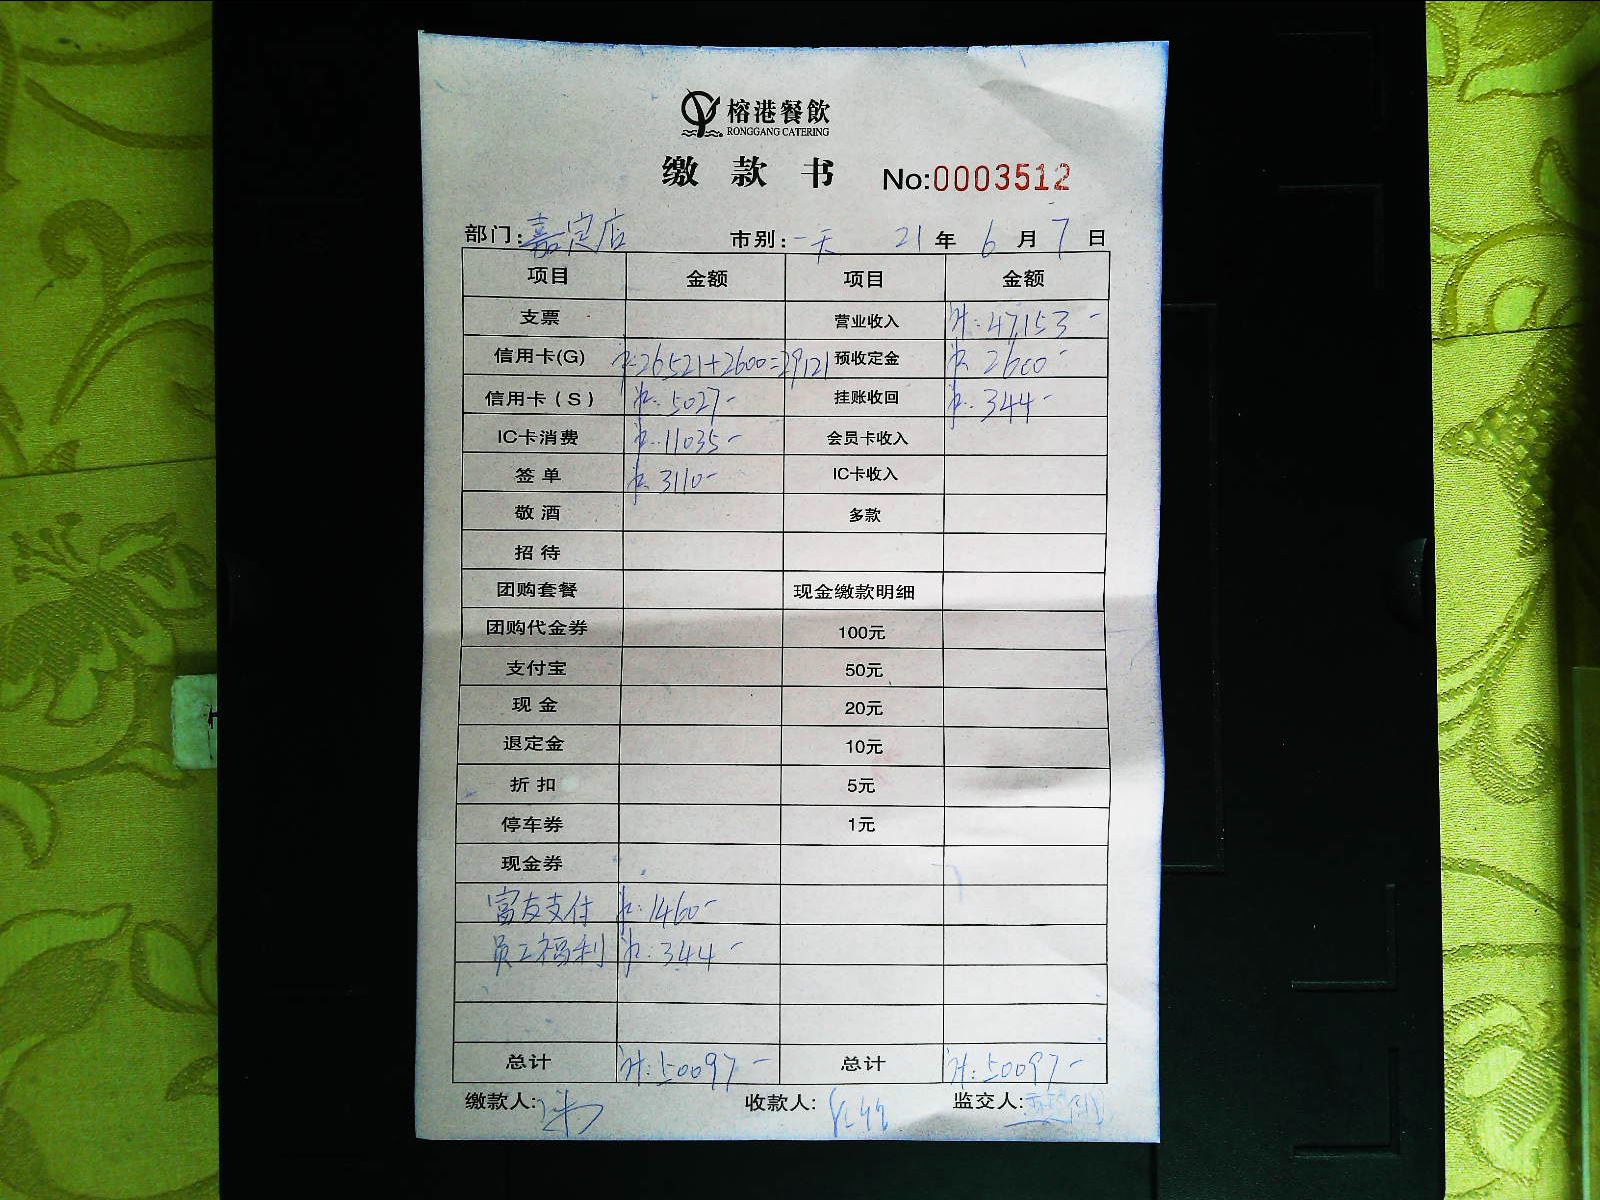 榕港餐飲
RONGGANG CATERING
缴 款 书 No:0003512
部门:嘉定店 市别:一天 21 年 6 月 7 日
项目 金额 项目 金额
支票 营业收入 计:47153-
信用卡(G) 计:26521+2600=29121 预收定金 计:2600-
信用卡(S) 计:5027- 挂账收回 计:344-
IC卡消费 计:11035- 会员卡收入
签 单 计:3110- IC卡收入
敬 酒 多款
招 待
团购套餐 现金缴款明细
团购代金券 100元
支付宝 50元
现 金 20元
退定金 10元
折 扣 5元
停车券 1元
现金券
富友支付 计:1460-
员工福利 计:344-
总计 计:50097- 总计 计:50097-
缴款人: 收款人: 监交人: